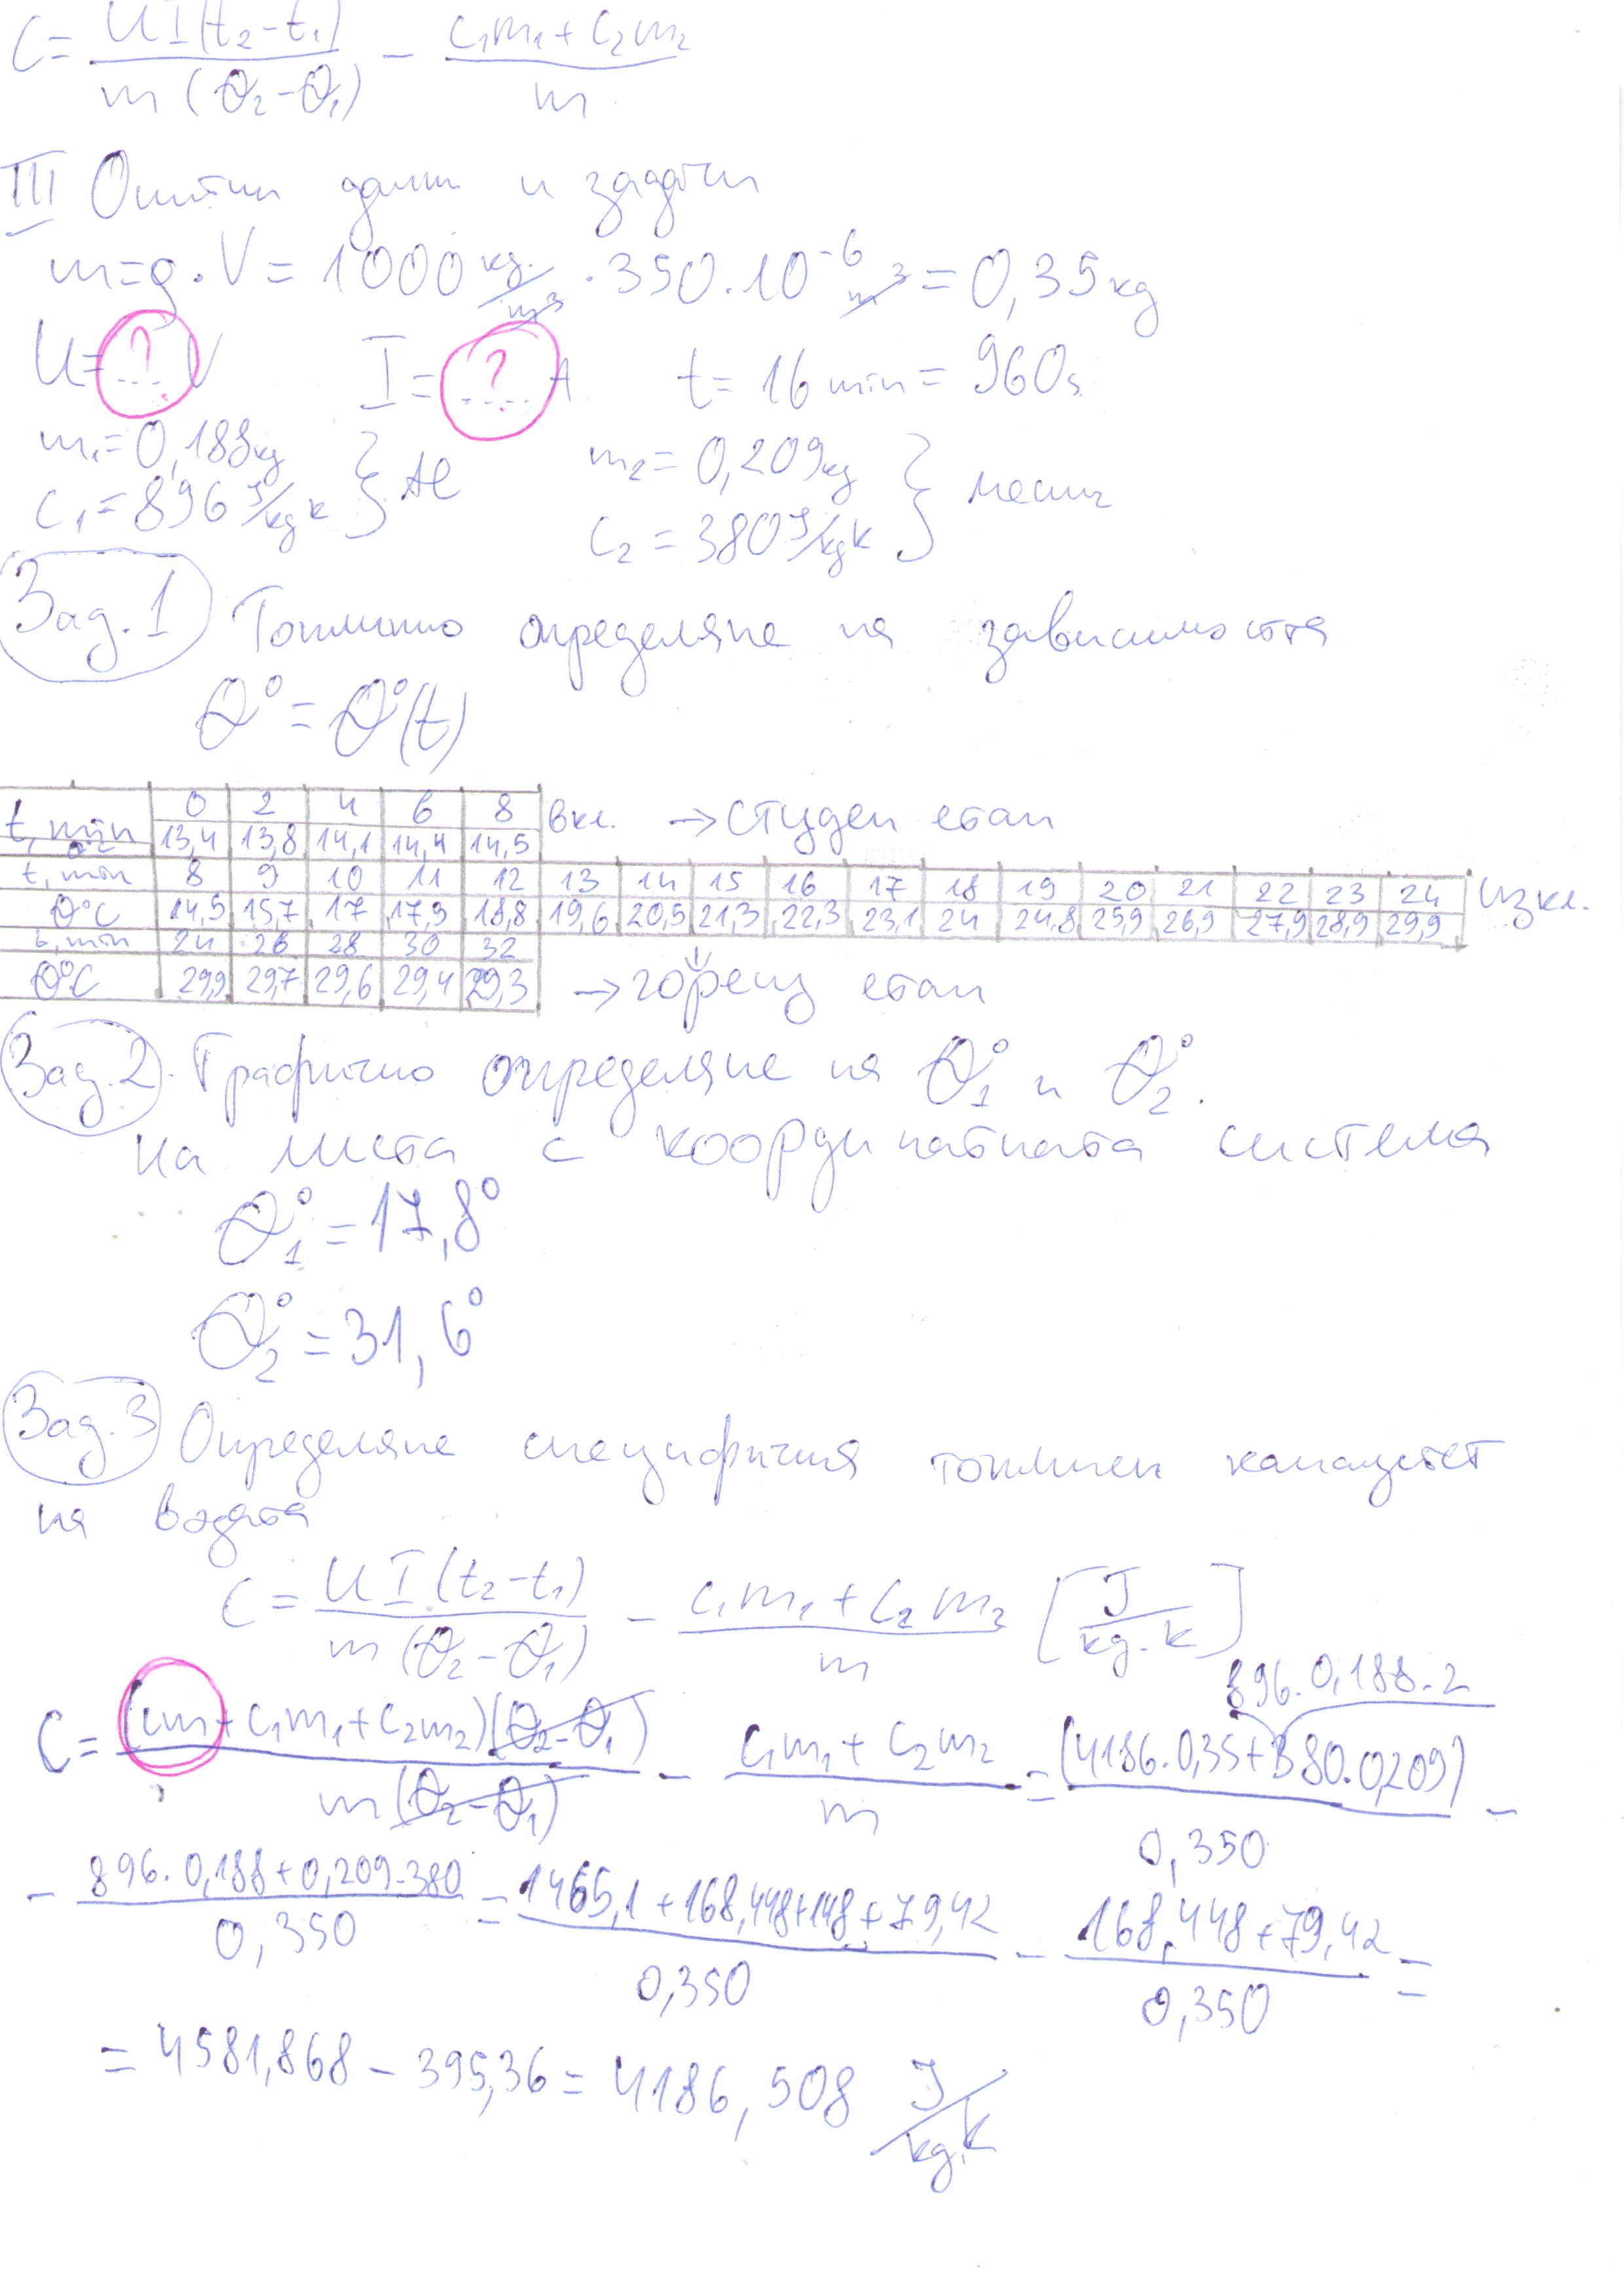 C = UI(t₂-t₁) / m(θ₂-θ₁) - c₁m₁+c₂m₂ / m
III Опитни данни и задачи
m=ρ.V= 1000 kg/m³ . 350.10⁻⁶ m³ = 0,35 kg
U= ...?... V I = ...?... A t= 16 min = 960s
m₁=0,188kg } Al m₂= 0,209kg } месинг
c₁=896 J/kgK c₂=380 J/kgK
Зад.1 Топлинно определяне на зависимостта
θ° = θ°(t)
t, min 0 2 4 6 8 вкл. → студен етап
θ°C 13,4 13,8 14,1 14,4 14,5
t, min 8 9 10 11 12 13 14 15 16 17 18 19 20 21 22 23 24 изкл.
θ°C 14,5 15,7 17 17,9 18,8 19,6 20,5 21,3 22,3 23,1 24 24,8 25,9 26,9 27,9 28,9 29,9
t, min 24 26 28 30 32
θ°C 29,9 29,7 29,6 29,4 29,3 → горещ етап
Зад.2. Графично определяне на θ₁° и θ₂°.
На листа с координатната система
θ₁° = 17,8°
θ₂° = 31,6°
Зад.3 Определяне специфичния топлинен капацитет
на водата
C = UI(t₂-t₁) / m(θ₂-θ₁) - c₁m₁+c₂m₂ / m [J / kg.K]
896.0,188.2
C = (cm+c₁m₁+c₂m₂)(θ₂-θ₁) / m(θ₂-θ₁) - c₁m₁+c₂m₂ / m = (4186.0,35+380.0,209) / 0,350 -
- 896.0,188+0,209.380 / 0,350 = 1465,1+168,448+148+79,42 / 0,350 - 168,448+79,42 / 0,350 =
= 4581,868 - 395,36 = 4186,508 J/kg.K